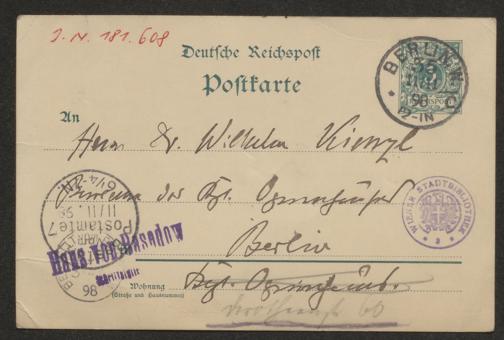 J. N. 181.608
Deutsche Reichspost
Postkarte
BERLIN, W.
98
12-1N
An
Herrn Dr. Wilhelm Kienzl
der Kgl. Opernhäuser
WIENER STADTBIBLIOTHEK
Postamte 7
11/11 98
Hans von Basedow
Schriftsteller
Berlin
98
Wohnung
(Straße und Hausnummer)
Kgl. Opernhaus.
60